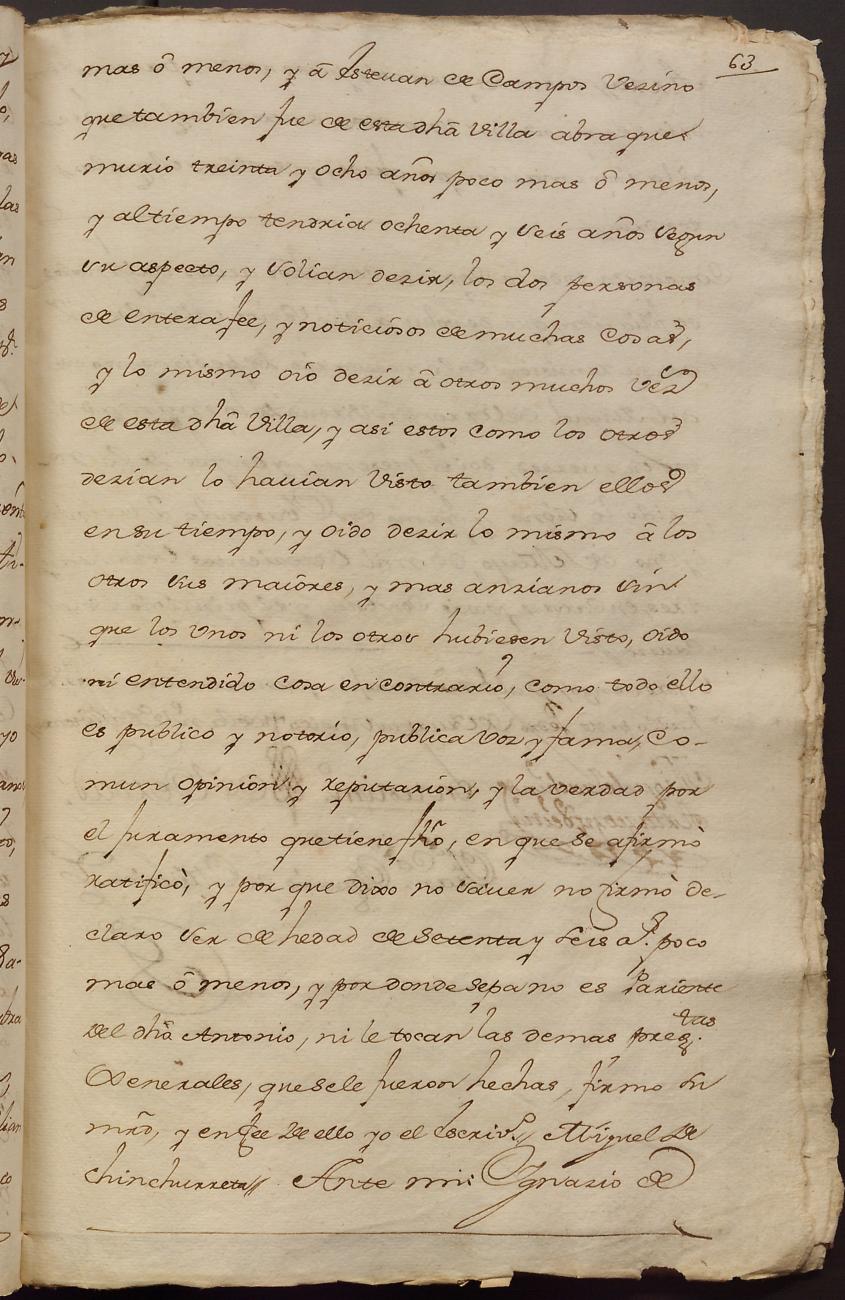 63
mas ô menos, y â Estevan de Campos Vezino
que tambien fue de esta dhâ Villa abra que
murio treinta y ocho años poco mas ô menos,
y al tiempo tendria ochenta y seis años segun
su aspecto, y solian dezir, los dos personas
de entera fee, y noticiosos de muchas cosas,
y lo mismo oiô dezir â otros muchos vezos
de esta dhâ Villa, y asi estos como los otros
dezian lo havian Visto tambien ellos
en su tiempo, y oido dezir lo mismo â los
otros sus maiôres, y mas anzianos sin
que los unos ni los otros hubiesen Visto, oido
ni entendido cosa en contrario, como todo ello
es publico y notorio, publica Voz y fama, Co-
mun opinion y reputazion, y la verdad por
el juramento que tiene fhô, en que se afirmò
ratificò, y por que dixo no saver no firmò de-
claro ser de hedad de setenta y seis a.s poco
mas ô menos, y por donde sepa no es Pariente
del dhô Antonio, ni le tocan las demas preg.tas
Generales, que se le fueron hechas, firmo su
mrd, y en fee de ello yo el Escriv.o // Miguel de
Chinchurreta // Ante mi: Ignazio de